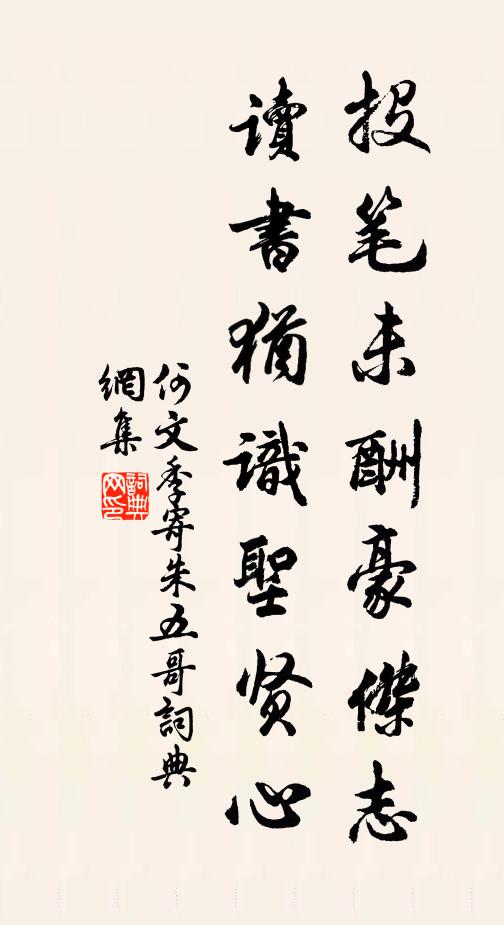 投笔未酬豪傑志
讀書猶識聖贤心
何文季寄朱五哥詞典
網集
詞典
网印